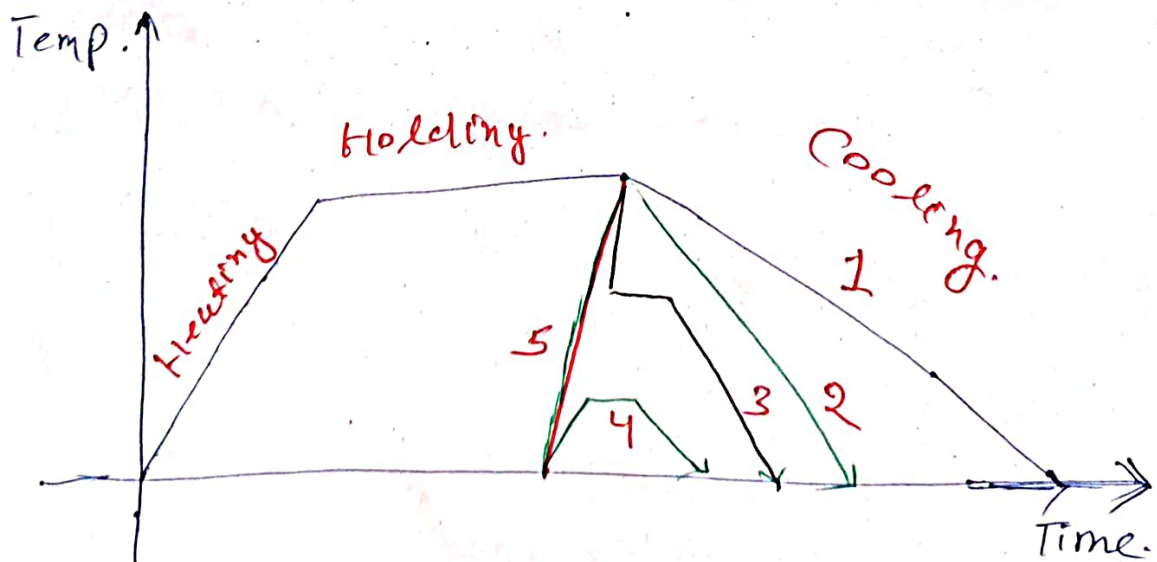 Temp.
Holding.
Cooling.
Heating
1
5
3
2
4
Time.